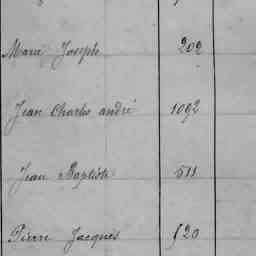 Marie Joseph 202
Jean Charles andré 1092
Jean Baptiste 511
Pierre Jacques 520